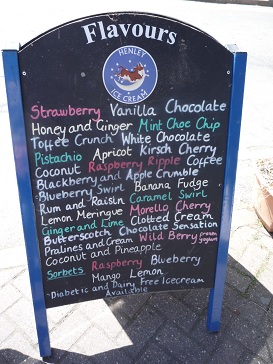 Flavours
HENLEY
ICE CREAM
Strawberry Vanilla Chocolate
Honey and Ginger Mint Choc Chip
Toffee Crunch White Chocolate
Pistachio Apricot Kirsch Cherry
Coconut Raspberry Ripple Coffee
Blackberry and Apple Crumble
Blueberry Swirl Banana Fudge
Rum and Raisin Caramel Swirl
Lemon Meringue Morello Cherry
Ginger and Lime Clotted Cream
Butterscotch Chocolate Sensation
Pralines and Cream Wild Berry frozen yoghurt
Coconut and Pineapple
Sorbets Raspberry Blueberry
Mango Lemon
Diabetic and Dairy Free Icecream
Available